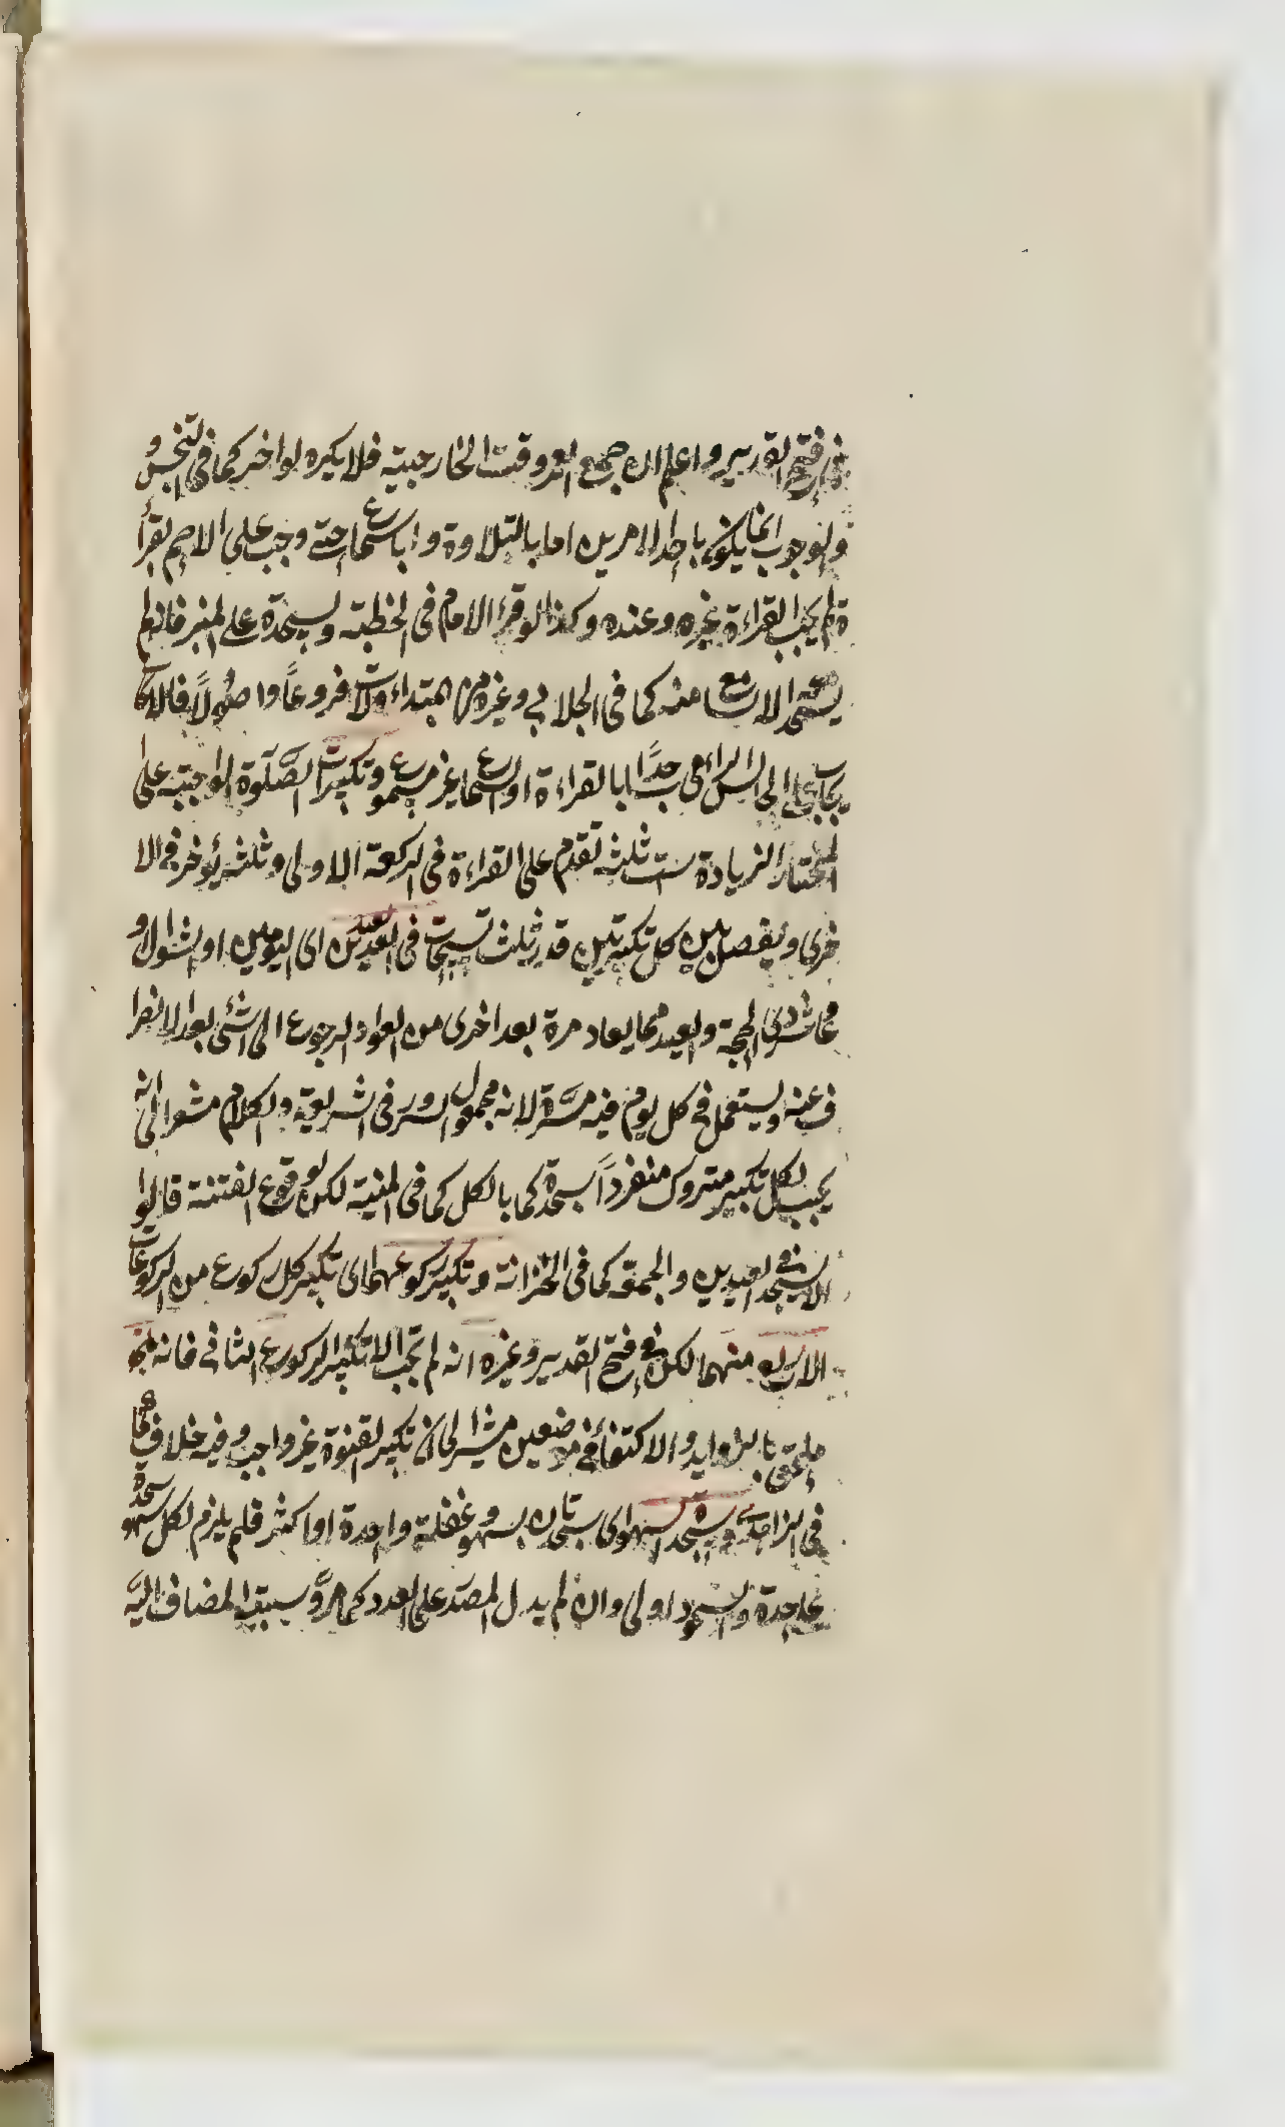 في فتح القدير واعلم ان جميع العمر وقت الخارجية فلا يكره لو اخر كما في التجنيس و
والوجوب انما يكون باحد الامرين اما بالتلاوة واما بالسماع حتى وجب على الاصم بقرأ
ة لم يجب القراءة غيره وعنده وكذا لو قرء الامام في الخطبة ويسجدة على المنبر فانه لم
يسجد معه الا السامع منه كما في الجلابي وغيره من
الى السامع بالقراءة او السماع غير مسموع وتكبيرات الصلوة الواجبة على
المختار الزيادة ست ثلثة تقدم على القراءة في الركعة الاولى وثلثة يؤخر في الا
خرى ويفصل بين كل تكبيرتين قدر ثلث تسبيحات في العيدين اى اليومين اول شوال و
عاشر ذي الحجة والعيد مما يعاد مرة بعد اخرى من العود الرجوع الى الشئ بعد الانصرا
ف عنه ويستعمل في كل يوم فيه مسرة لانه مجعول السرور في الشريعة والكلام مشعر الى انه
يجب لكل تكبير متروك منفرداً سجدة كما بالكل كما في المنية لكن لوقوع الفتنة قالوا
لا يسجد في العيدين والجمعة كما في الخزانة وتكبير ركوعهما اى تكبير كل ركوع من الركوعات
الاربع منهما لكن في فتح القدير وغيره انه لم تجب الا تكبير الركوع الثاني فانه
ملحق بالزوايد والاكتفاء في موضعين مشير الى ان تكبير القنوة غير واجب وفيه خلاف كما
في الزاهدى ويسجد لسهو اى سجدتان بسهو غفلة واحدة او اكثر فلم يلزم لكل سهو سجدة
عليحدة والسجود اولى وان لم يدل المصدر على العدد كما مر وسبق المضاف اليه